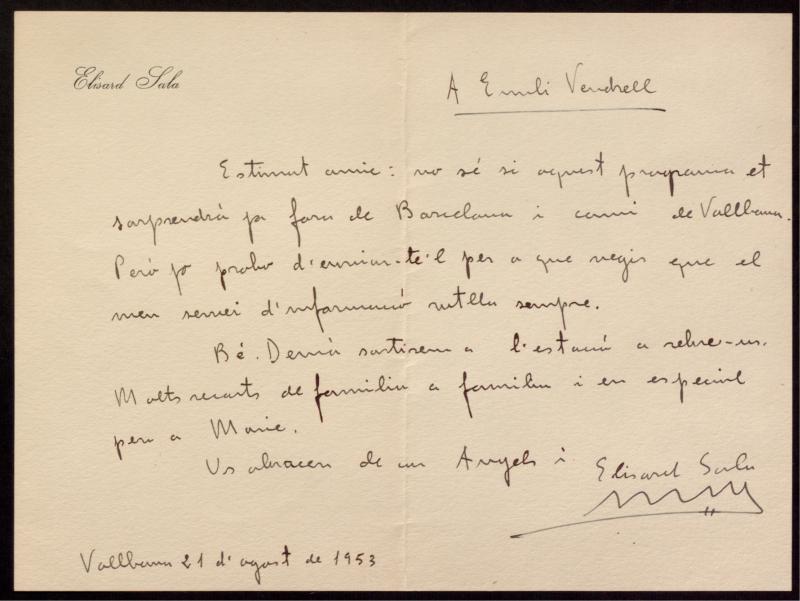 Elisard Sala
A Emili Vendrell
Estimat amic: no sé si aquest programa et
sorprendrà ja fora de Barcelona i camí de Vallbona.
Però jo probo d'enviar-te'l per a que vegis que el
meu servei d'informació rutlla sempre.
Bé. Demà sortirem a l'estació a rebre-us.
Molts records de familia a familia i en especial
per a Maria.
Us abracen de cor Angels i Elisard Sala
Vallbona 21 d'agost de 1953